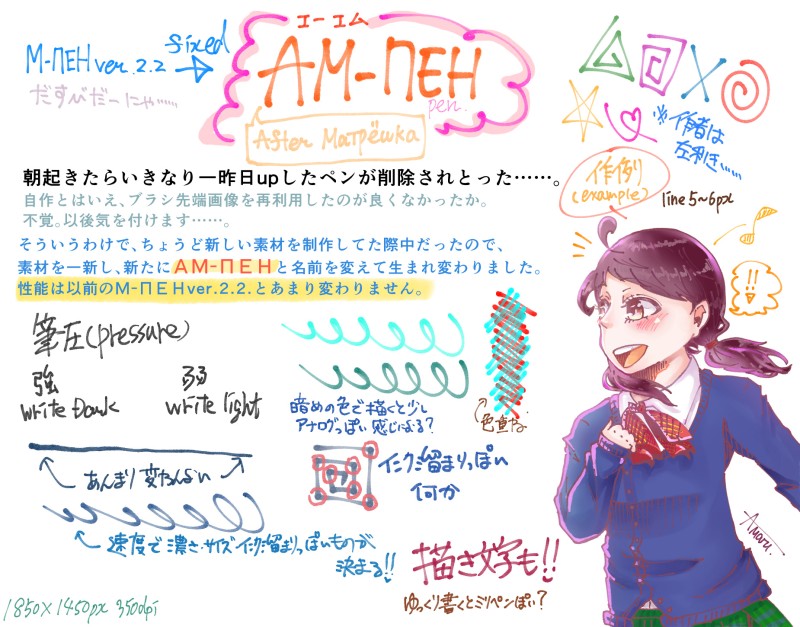 エーエム
M-ПEH ver.2.2
fixed
AM-ПEH
pen.
だすびだーにゃ……
After Матрёшка
※作者は
左利き……
作例
(example)
line 5~6px
朝起きたらいきなり一昨日upしたペンが削除されとった……。
自作とはいえ、ブラシ先端画像を再利用したのが良くなかったか。
不覚。以後気を付けます……。
そういうわけで、ちょうど新しい素材を制作してた際中だったので、
素材を一新し、新たにAM-ПEHと名前を変えて生まれ変わりました。
性能は以前のM-ПEHver.2.2.とあまり変わりません。
!!
筆圧(pressure)
強
弱
write Dark
write light
暗めの色で描くと少し
アナログっぽい感じになる?
色重ね
あんまり変わんない
インク溜まりっぽい
何か
速度で濃さ・サイズ・インク溜まりっぽいものが
決まる!!
描き文字も!!
ゆっくり書くとミリペンぽい?
Amaru.
1850×1450px 350dpi